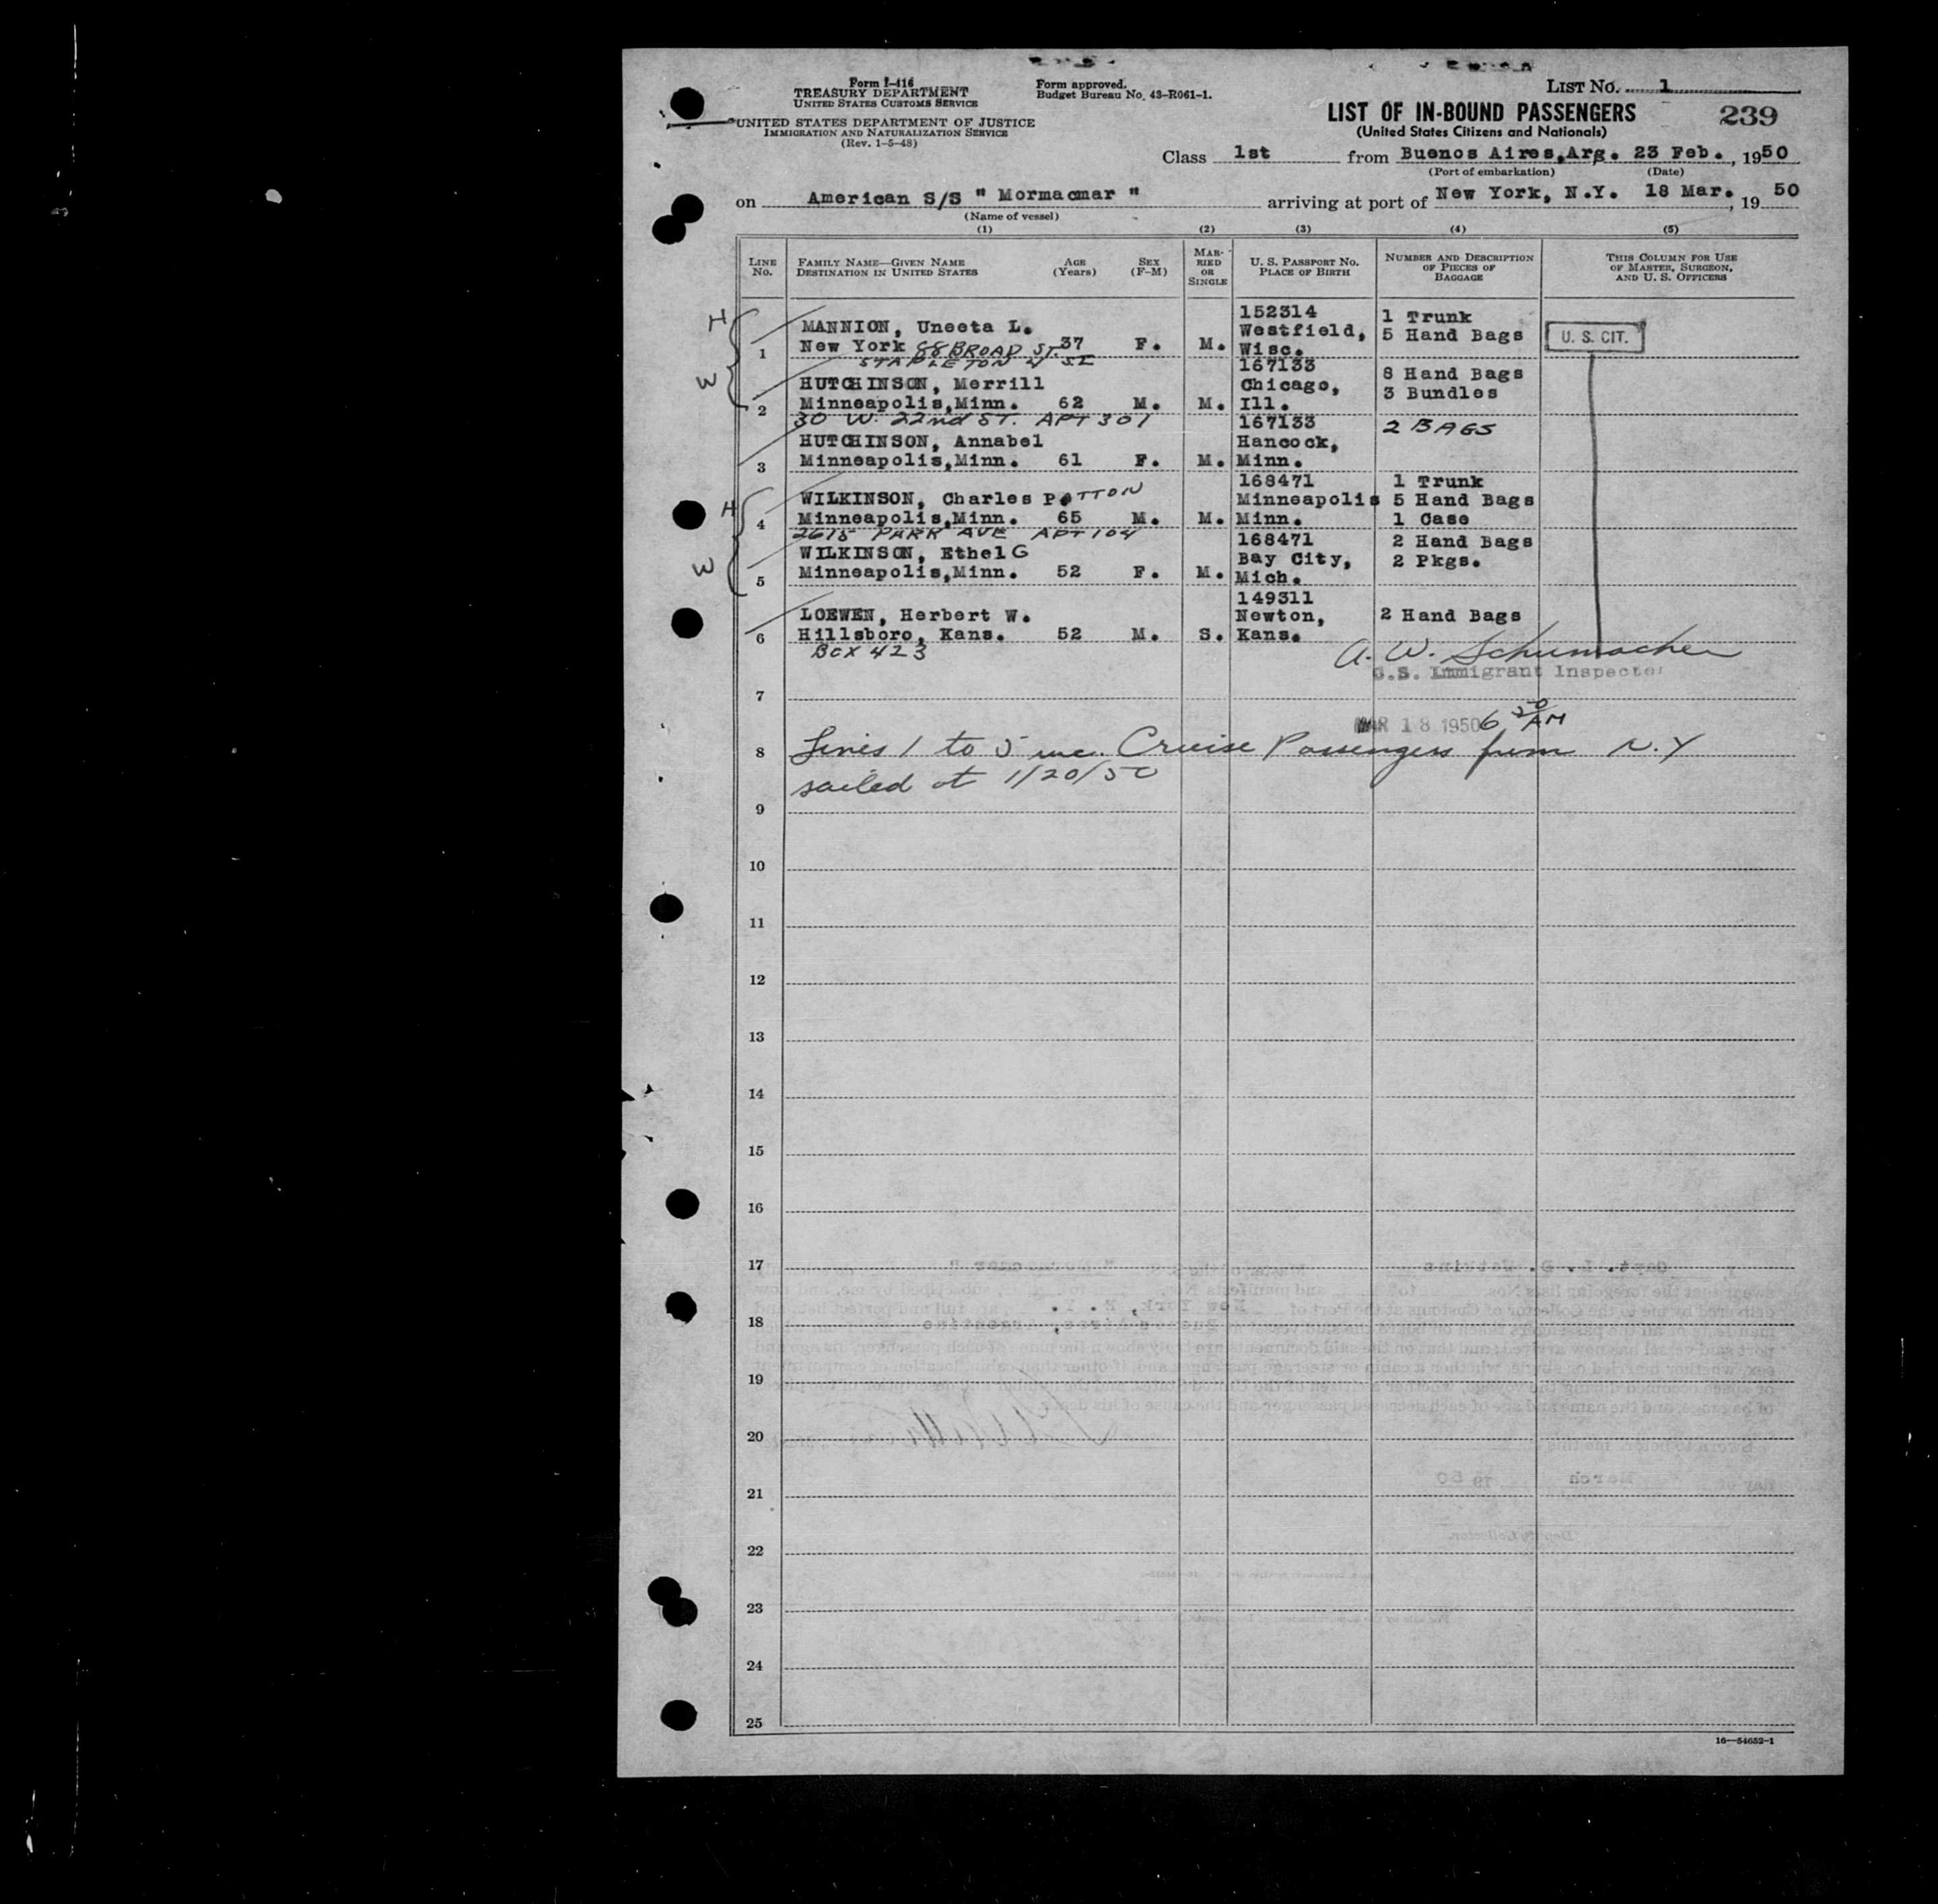 Form I-416
TREASURY DEPARTMENT
UNITED STATES CUSTOMS SERVICE
UNITED STATES DEPARTMENT OF JUSTICE
IMMIGRATION AND NATURALIZATION SERVICE
(Rev. 1-5-48)
Form approved.
Budget Bureau No. 43-R061-1.
LIST NO. 1
LIST OF IN-BOUND PASSENGERS
239
(United States Citizens and Nationals)
Class 1st from Buenos Aires, Arg. 23 Feb., 1950
(Port of embarkation) (Date)
on American S/S " Mormacmar " arriving at port of New York, N.Y. 18 Mar., 19 50
(Name of vessel)
(1) (2) (3) (4) (5)
LINE NO.
FAMILY NAME—GIVEN NAME
DESTINATION IN UNITED STATES
AGE (Years)
SEX (F-M)
MARRIED OR SINGLE
U. S. PASSPORT NO.
PLACE OF BIRTH
NUMBER AND DESCRIPTION OF PIECES OF BAGGAGE
THIS COLUMN FOR USE OF MASTER, SURGEON, AND U. S. OFFICERS
H
W
1 MANNION, Uneeta L. 152314 1 Trunk
New York 88 BROAD ST. 37 F. M. Westfield, Wisc. 5 Hand Bags U. S. CIT.
STAPLETON 4 S.I
2 HUTCHINSON, Merrill 167133 8 Hand Bags
Minneapolis, Minn. 62 M. M. Chicago, Ill. 3 Bundles
30 W. 22nd ST. APT 301
3 HUTCHINSON, Annabel 167133 2 BAGS
Minneapolis, Minn. 61 F. M. Hancock, Minn.
H
W
4 WILKINSON, Charles PATTON 168471 1 Trunk
Minneapolis, Minn. 65 M. M. Minneapolis Minn. 5 Hand Bags 1 Case
2615 PARK AVE APT 104
5 WILKINSON, Ethel G 168471 2 Hand Bags
Minneapolis, Minn. 52 F. M. Bay City, Mich. 2 Pkgs.
6 LOEWEN, Herbert W. 149311
Hillsboro, Kans. 52 M. S. Newton, Kans. 2 Hand Bags
BOX 423
A. W. Schumacher
U.S. Immigrant Inspector
7
MAR 18 1950 6 50 AM
8 Lines 1 to 5 inc. Cruise Passengers from N.Y
sailed at 1/20/50
9
10
11
12
13
14
15
16
17
18
19
20
21
22
23
24
25
16—54652-1